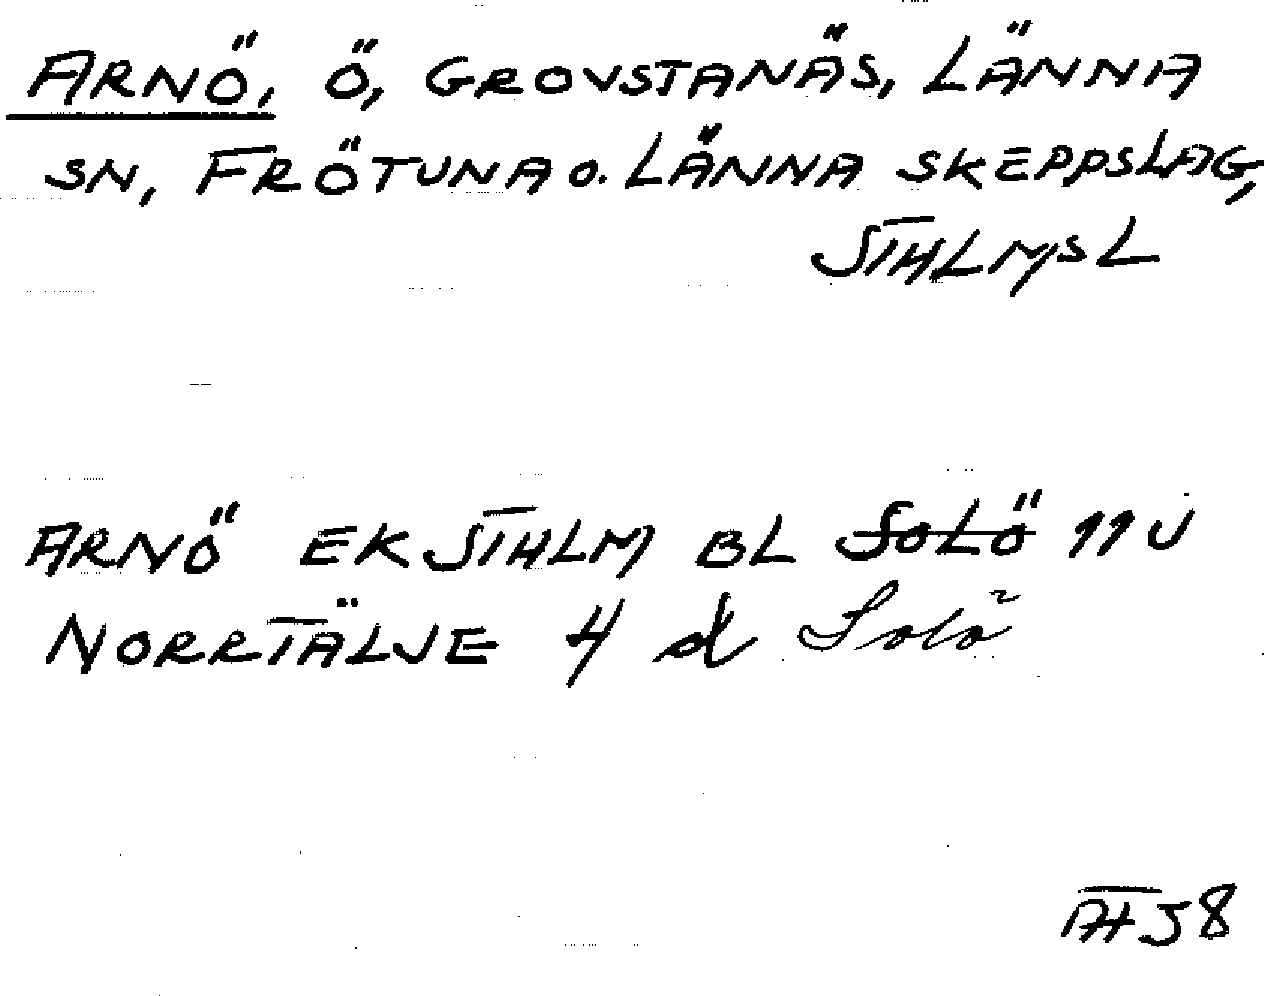 ARNÖ, Ö, GROVSTANÄS, LÄNNA
SN, FRÖTUNA O. LÄNNA SKEPPSLAG,
STHLMS L
ARNÖ EK STHLM BL SOLÖ 11 U
NORRTÄLJE 4 d Solö